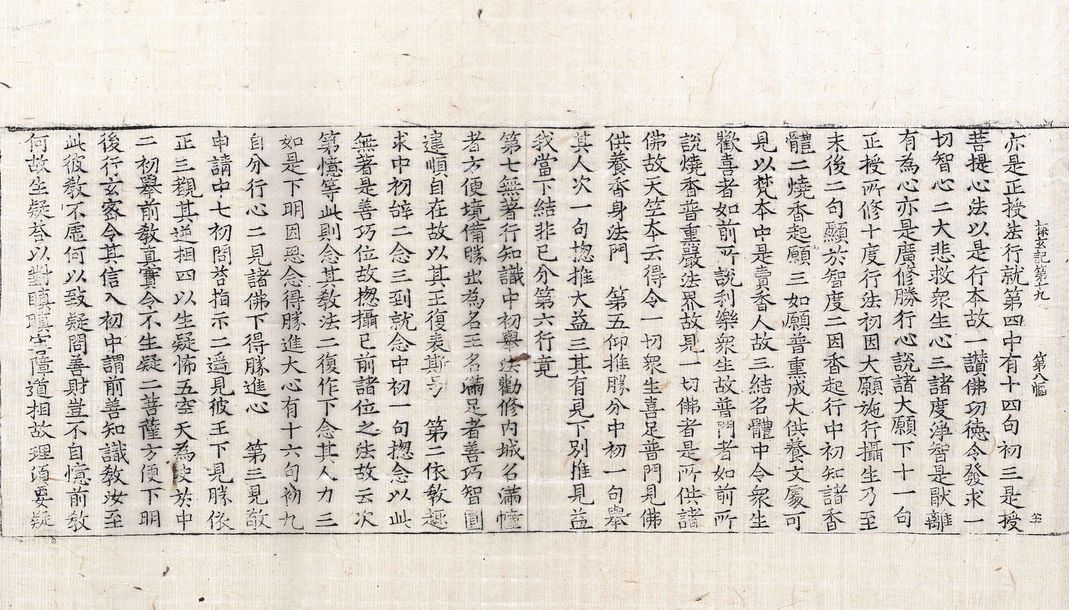 探玄記第十九　第八幅
亦是正授法行就第四中有十四句初三是授
菩提心法以是行本故一讃佛功徳令發求一
切智心二大悲救衆生心三諸度淨智是猒離
有為心亦是廣修勝行心說諸大願下十一句
正授所修十度行法初因大願施行攝生乃至
末後二句願於智度二因香起行中初知諸香
體二燒香起願三如願普熏成大供養文處可
見以梵本中是賣香人故三結名體中令衆生
歡喜者如前所說利樂衆生故普門者如前所
說燒香普熏嚴法界故見一切佛者是所供諸
佛故天竺本云得令一切衆生喜足普門見佛
供養香身法門　第五仰推勝分中初一句舉
其人次一句揔推大益三其有見下別推見益
我當下結非已分第六行竟
第七無著行知識中初舉法勸修內城名滿幢
者方便境備勝出為名王名滿足者善巧智圓
違順自在故以其王復表斯号　第二依教趣
求中初辝二念三到就念中初一句揔念以此
無著是善巧位故揔攝已前諸位之法故云次
第憶等此則念其教法二復作下念其人力三
如是下明因思念得勝進大心有十六句初九
自分行心二見諸佛下得勝進心　第三見敬
申請中七初問荅指示二遥見彼王下見勝依
正三觀其逆相四以生疑怖五空天為決於中
二初舉前教真實令不生疑二菩薩方便下明
後行玄密令其信入初中謂前善知識教汝至
此彼教不虛何以致疑問善財豈不自憶前教
何故生疑荅以對瞋害障道相故理須要疑